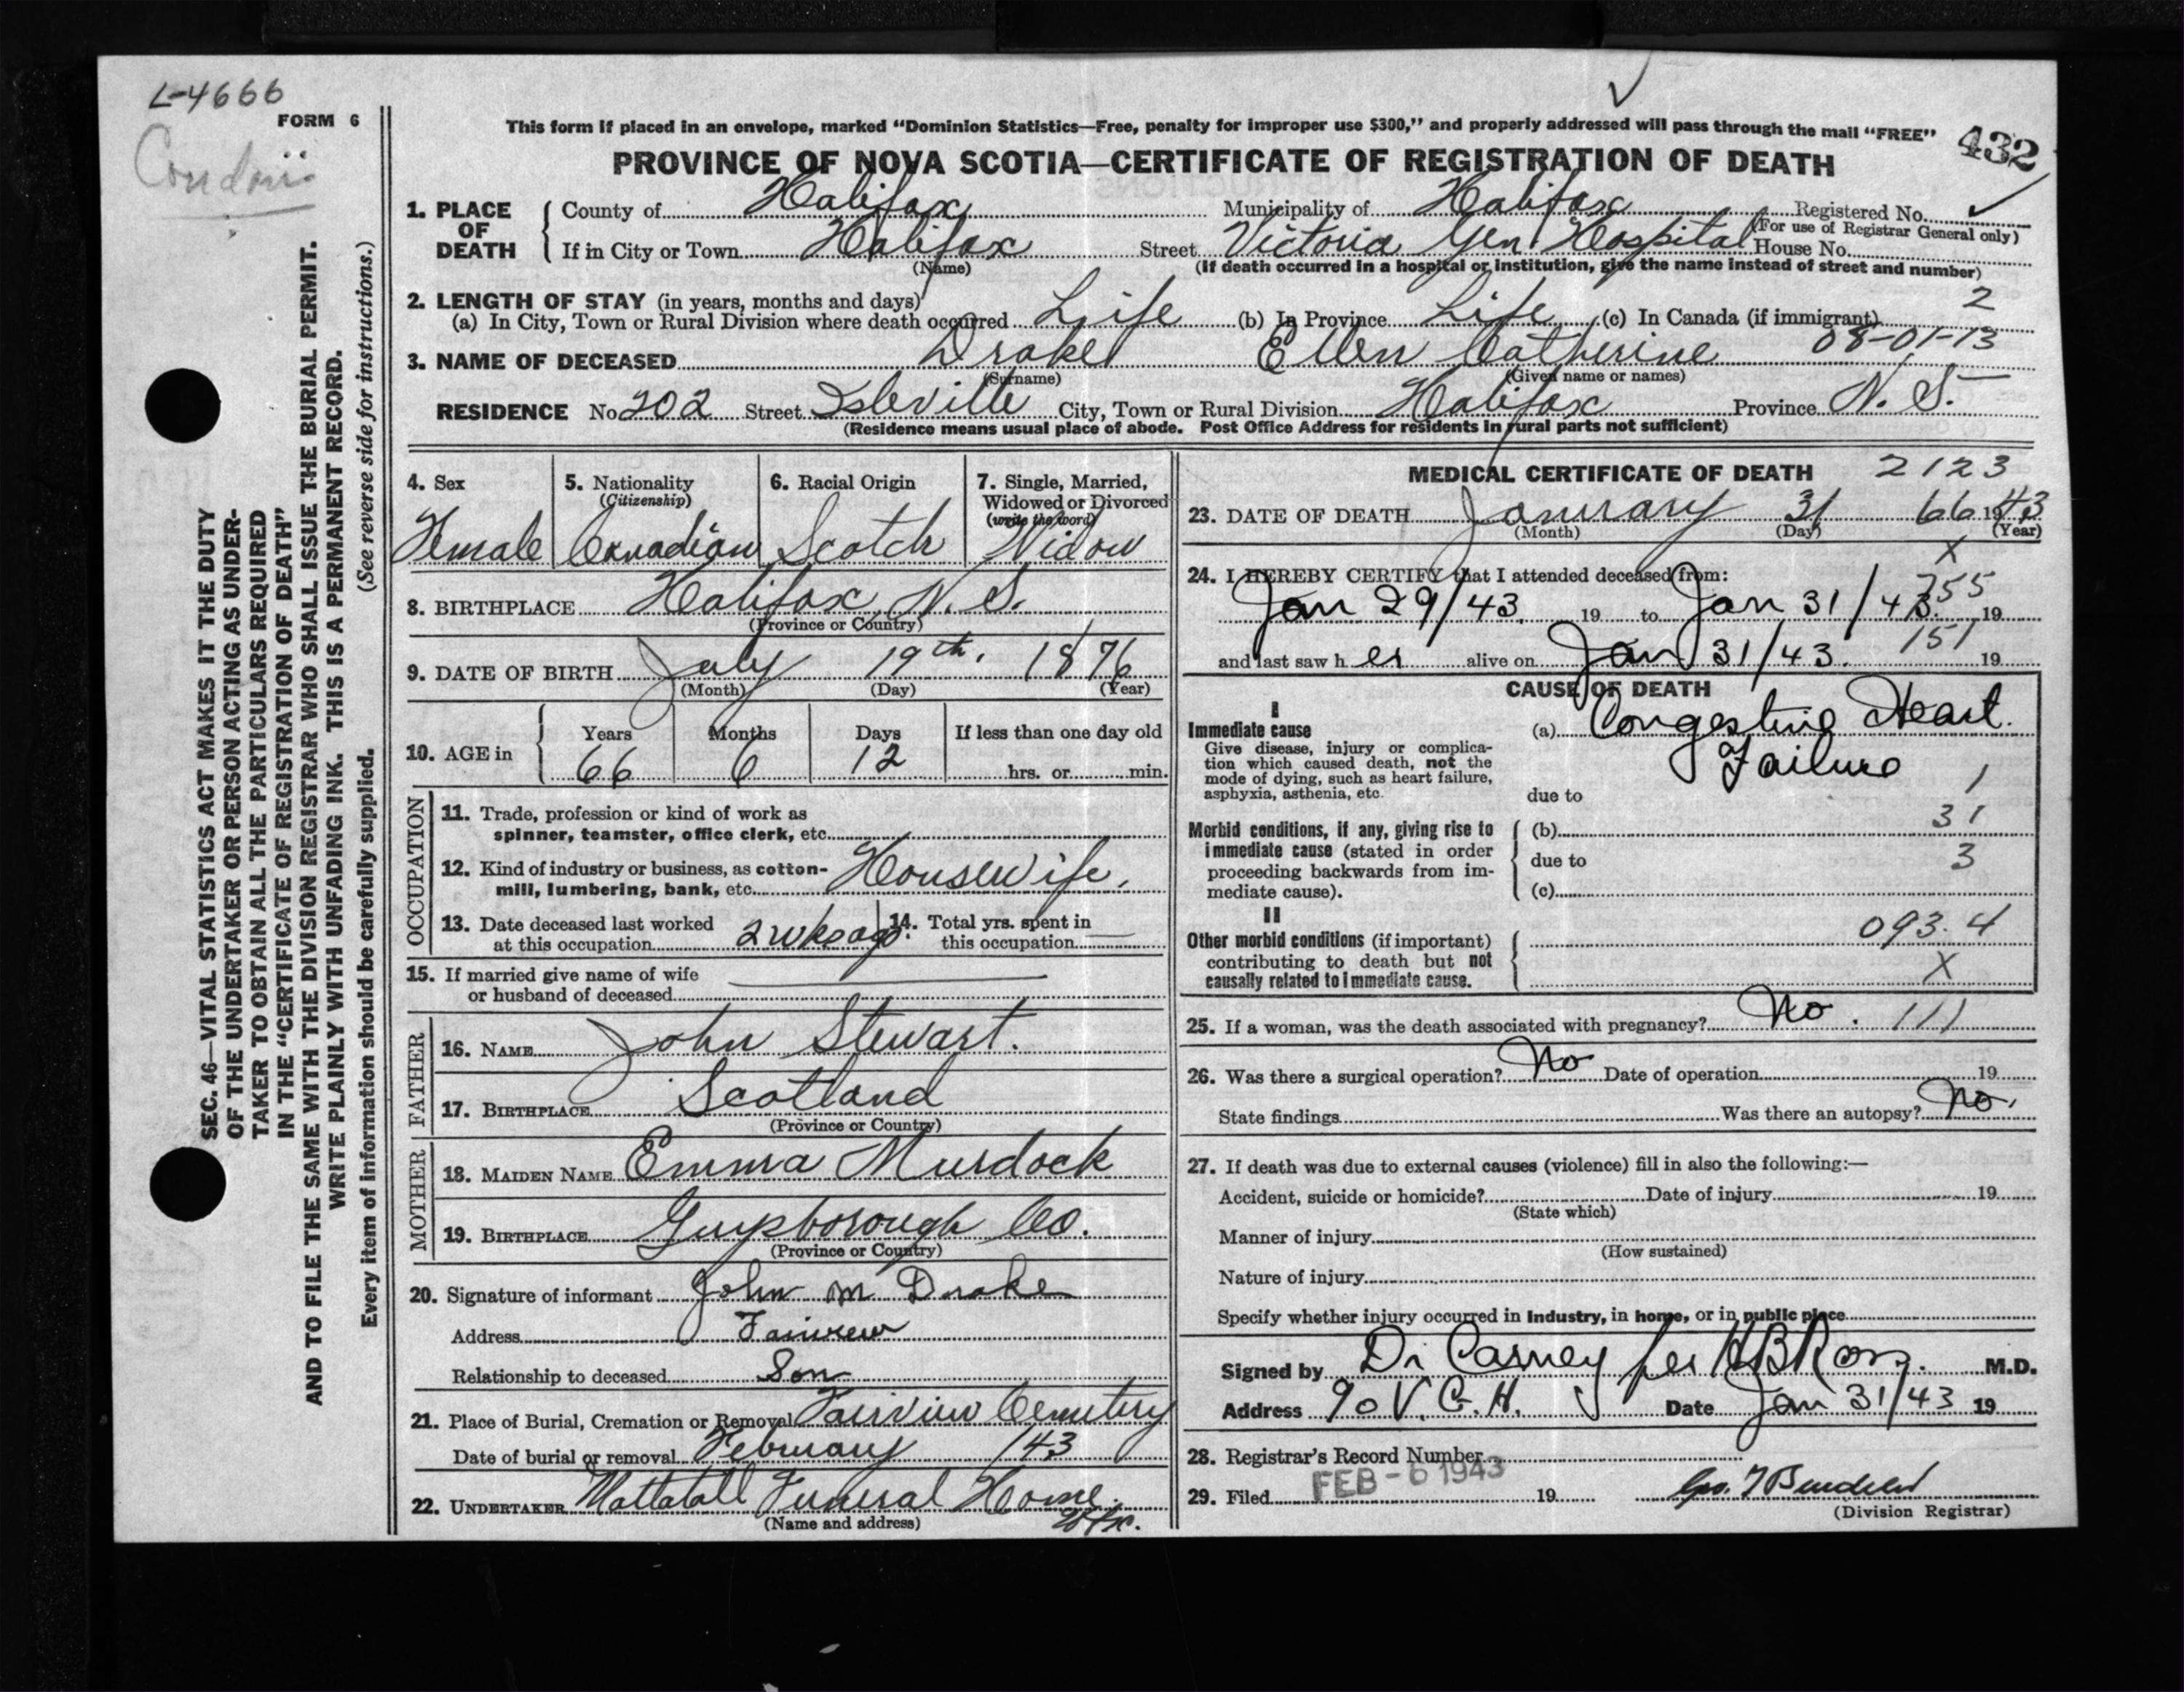 L-4666
FORM 6
SEC. 46—VITAL STATISTICS ACT MAKES IT THE DUTY
OF THE UNDERTAKER OR PERSON ACTING AS UNDER-
TAKER TO OBTAIN ALL THE PARTICULARS REQUIRED
IN THE "CERTIFICATE OF REGISTRATION OF DEATH"
AND TO FILE THE SAME WITH THE DIVISION REGISTRAR WHO SHALL ISSUE THE BURIAL PERMIT.
WRITE PLAINLY WITH UNFADING INK. THIS IS A PERMANENT RECORD.
Every item of information should be carefully supplied. (See reverse side for instructions.)
This form if placed in an envelope, marked "Dominion Statistics—Free, penalty for improper use $300," and properly addressed will pass through the mail "FREE"
432
PROVINCE OF NOVA SCOTIA—CERTIFICATE OF REGISTRATION OF DEATH
1. PLACE OF DEATH County of Halifax Municipality of Halifax Registered No.
(For use of Registrar General only)
If in City or Town Halifax Street Victoria Gen. Hospital House No.
(Name) (If death occurred in a hospital or institution, give the name instead of street and number)
2. LENGTH OF STAY (in years, months and days) 2
(a) In City, Town or Rural Division where death occurred Life (b) In Province Life (c) In Canada (if immigrant)
08-01-13
3. NAME OF DECEASED Drake Ellen Catherine
(Surname) (Given name or names)
RESIDENCE No 202 Street Isleville City, Town or Rural Division Halifax Province N. S.
(Residence means usual place of abode. Post Office Address for residents in rural parts not sufficient)
4. Sex 5. Nationality (Citizenship) 6. Racial Origin 7. Single, Married, Widowed or Divorced (write the word)
Female Canadian Scotch Widow
8. BIRTHPLACE Halifax, N. S.
(Province or Country)
9. DATE OF BIRTH July 19th, 1876
(Month) (Day) (Year)
10. AGE in Years Months Days If less than one day old
66 6 12 hrs. or min.
OCCUPATION
11. Trade, profession or kind of work as
spinner, teamster, office clerk, etc.
12. Kind of industry or business, as cotton-
mill, lumbering, bank, etc. Housewife,
13. Date deceased last worked 14. Total yrs. spent in
at this occupation 2 wks ago this occupation
15. If married give name of wife
or husband of deceased
FATHER
16. NAME John Stewart.
17. BIRTHPLACE Scotland
(Province or Country)
MOTHER
18. MAIDEN NAME Emma Murdock
19. BIRTHPLACE Guysborough Co.
(Province or Country)
20. Signature of informant John M Drake
Address Fairview
Relationship to deceased Son
21. Place of Burial, Cremation or Removal Fairview Cemetery
Date of burial or removal February 143
22. UNDERTAKER Mattatall Funeral Home.
(Name and address) Hfx.
MEDICAL CERTIFICATE OF DEATH 2123
23. DATE OF DEATH January 31 66 1943
(Month) (Day) (Year)
X
24. I HEREBY CERTIFY that I attended deceased from:
755
Jan 29/43. 19 to Jan 31/43. 19
151
and last saw h er alive on Jan 31/43. 19
CAUSE OF DEATH
I
Immediate cause (a) Congestive Heart
Failure
Give disease, injury or complica-
tion which caused death, not the
mode of dying, such as heart failure,
asphyxia, asthenia, etc. due to 1
31
Morbid conditions, if any, giving rise to (b)
immediate cause (stated in order due to 3
proceeding backwards from im-
mediate cause). (c)
II
093.4
Other morbid conditions (if important)
contributing to death but not X
causally related to immediate cause.
25. If a woman, was the death associated with pregnancy? No. 111
26. Was there a surgical operation? No Date of operation 19
State findings Was there an autopsy? No.
27. If death was due to external causes (violence) fill in also the following:—
Accident, suicide or homicide? Date of injury 19
(State which)
Manner of injury
(How sustained)
Nature of injury
Specify whether injury occurred in Industry, in home, or in public place
Signed by Dr Carney per HB Ross. M.D.
Address % V.G.H. Date Jan 31/43 19
28. Registrar's Record Number
29. Filed FEB - 6 1943 19
(Division Registrar)